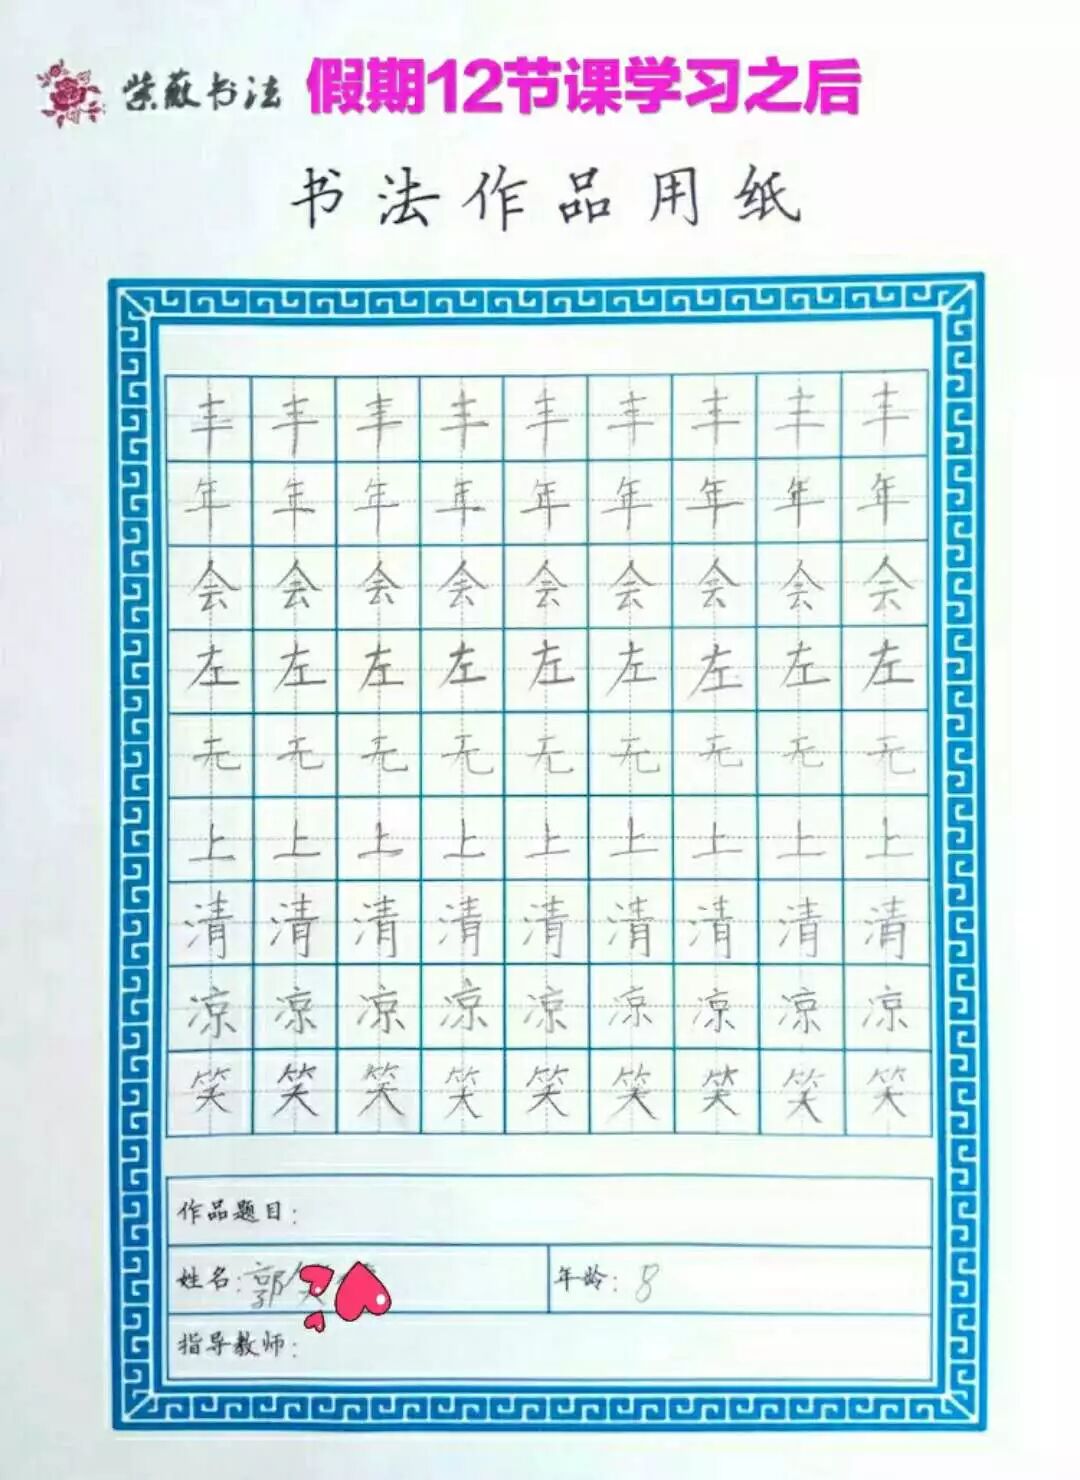 紫薇书法 假期12节课学习之后
书法作品用纸
丰丰丰丰丰丰丰丰丰
年年年年年年年年年
会会会会会会会会会
左左左左左左左左左
无无无无无无无无无
上上上上上上上上上
清清清清清清清清清
凉凉凉凉凉凉凉凉凉
笑笑笑笑笑笑笑笑笑
作品题目:
姓名:郭 年龄:8
指导教师: